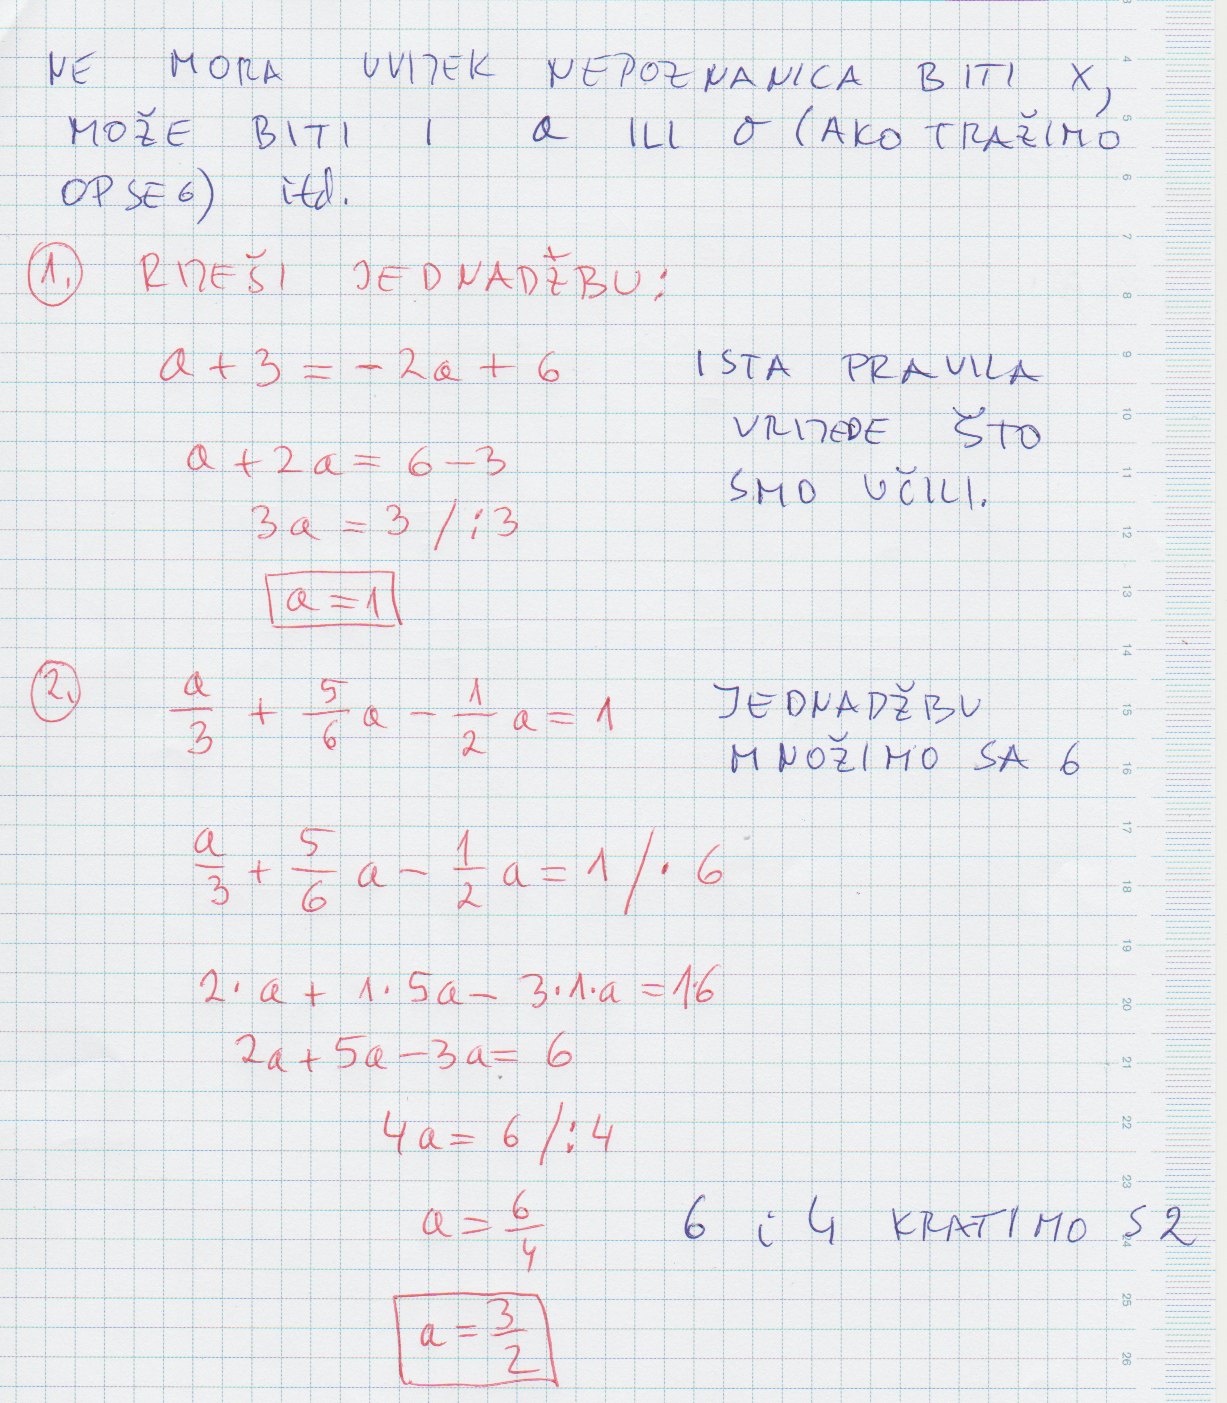 NE MORA UVIJEK NEPOZNANICA BITI X,
MOŽE BITI I a ILI σ (AKO TRAŽIMO
OPSEG) itd.
1. RIJEŠI JEDNADŽBU:
a + 3 = -2a + 6 ISTA PRAVILA
VRIJEDE ŠTO
a + 2a = 6 - 3
SMO UČILI.
3a = 3 /:3
a = 1
2. a/3 + 5/6 a - 1/2 a = 1 JEDNADŽBU
MNOŽIMO SA 6
a/3 + 5/6 a - 1/2 a = 1 /· 6
2·a + 1·5a - 3·1·a = 1·6
2a + 5a - 3a = 6
4a = 6 /:4
a = 6/4 6 i 4 KRATIMO S 2
a = 3/2
3
4
5
6
7
8
9
10
11
12
13
14
15
16
17
18
19
20
21
22
23
24
25
26